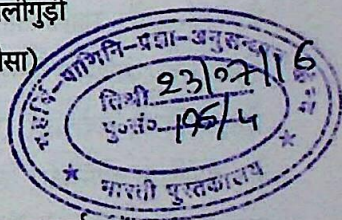 लीगुड़ी
सा)
पाणिनि-प्रज्ञा-अनुसन्धान
तिथी 23/07/16
पु०सं०
भारती पुस्तकालय